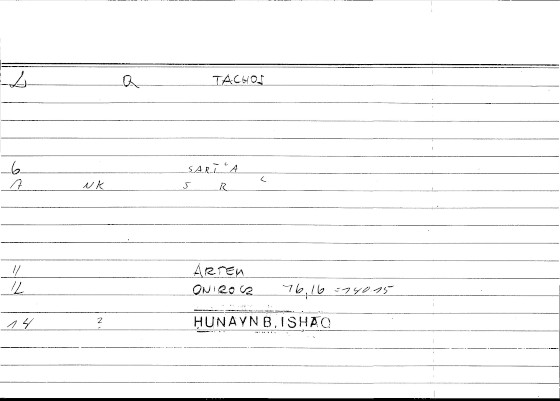 L Q TACHOS
6 SART+A
A NK S R C
11 ARTEM
12 ONIROCR 16,16 =14015
14 ? HUNAYN B. ISHAQ